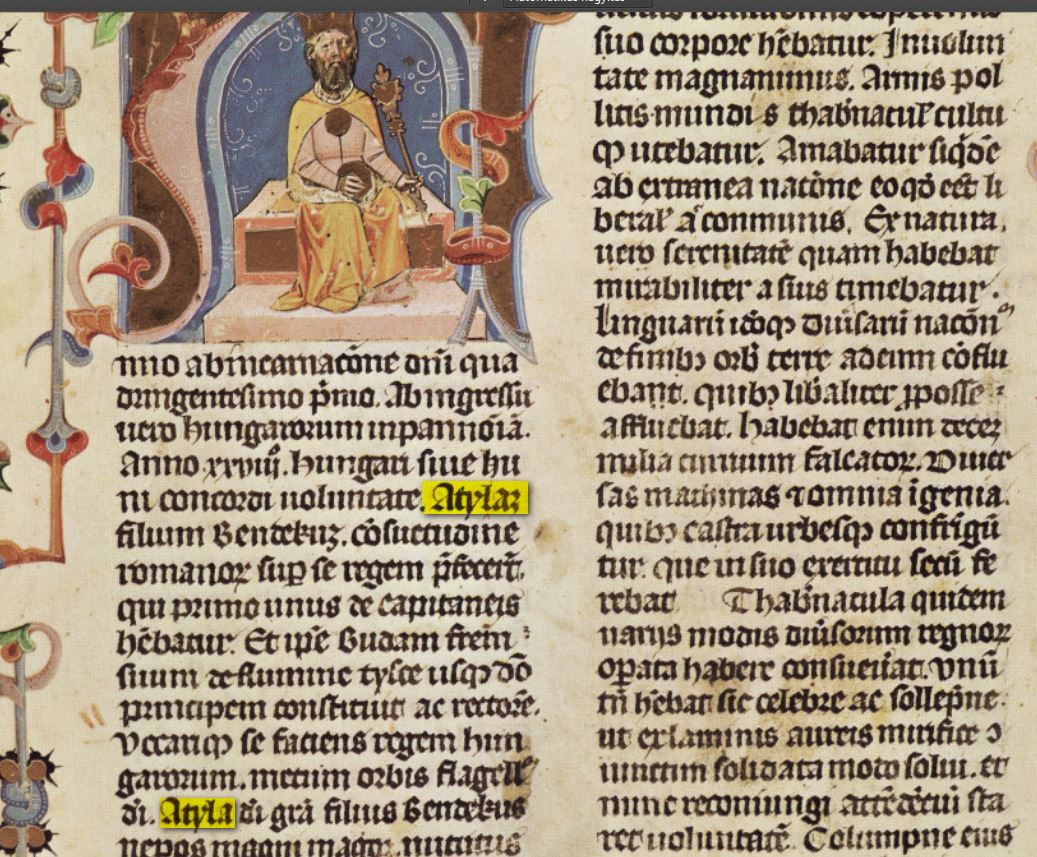 nno ab incarnacōne dn̄i qua
dringentesimo p̄mo. Ab ingressu
uero hungarorum in pannōia.
Anno xxviij. hungari siue hu
ni concordi uoluntate. Atylaz
filium Bendekuz. cōsuetudine
romanoꝝ sup se regem p̄fecer̄t.
qui primo unus de capitaneis
hēbatur. Et ip̄e Budam frēm
suum de flumine tysce usqꝫ dō
principem constituit ac rectorē.
Vocariqꝫ se faciens regem hun
garorum. metum orbis flagell
di. Atyla di grā filius Bendekus
nepos magni magor. nutritus
suo corpore hēbatur. In uolun
tate magnanimus. Armis pol
litis mundis thab̄nacul cultu
qꝫ utebatur. Amabatur siqd̄e
ab extranea natōne eo qd̄ eēt li
beral a cōnmunis. Ex natura
uero serenitatē quam habebat
mirabiliter a suis timebatur.
Linguarū idōqꝫ diuisarū nacōn
de finibꝫ orb̄ terre ad eum cōflu
ebant. quibꝫ lib̄aliter ꝓ posse
affluebat. habebat enim decez
milia curruum falcatoꝝ. Diuer
sas machinas ⁊ omnia īgenia.
quibꝫ castra urbesqꝫ confrīgū
tur. que in suo exercitu secū fe
rebat Thab̄nacula quidem
uariis modis diūsorum regnoꝝ
opata habere consueuat. Vnū
tn̄ hēbat sic celebre ac sollep̄ne.
ut ex laminis aureis mirifice
iunctim solidata modo solui. et
nunc reconiungi
ret uoluntatē. Columpne eius